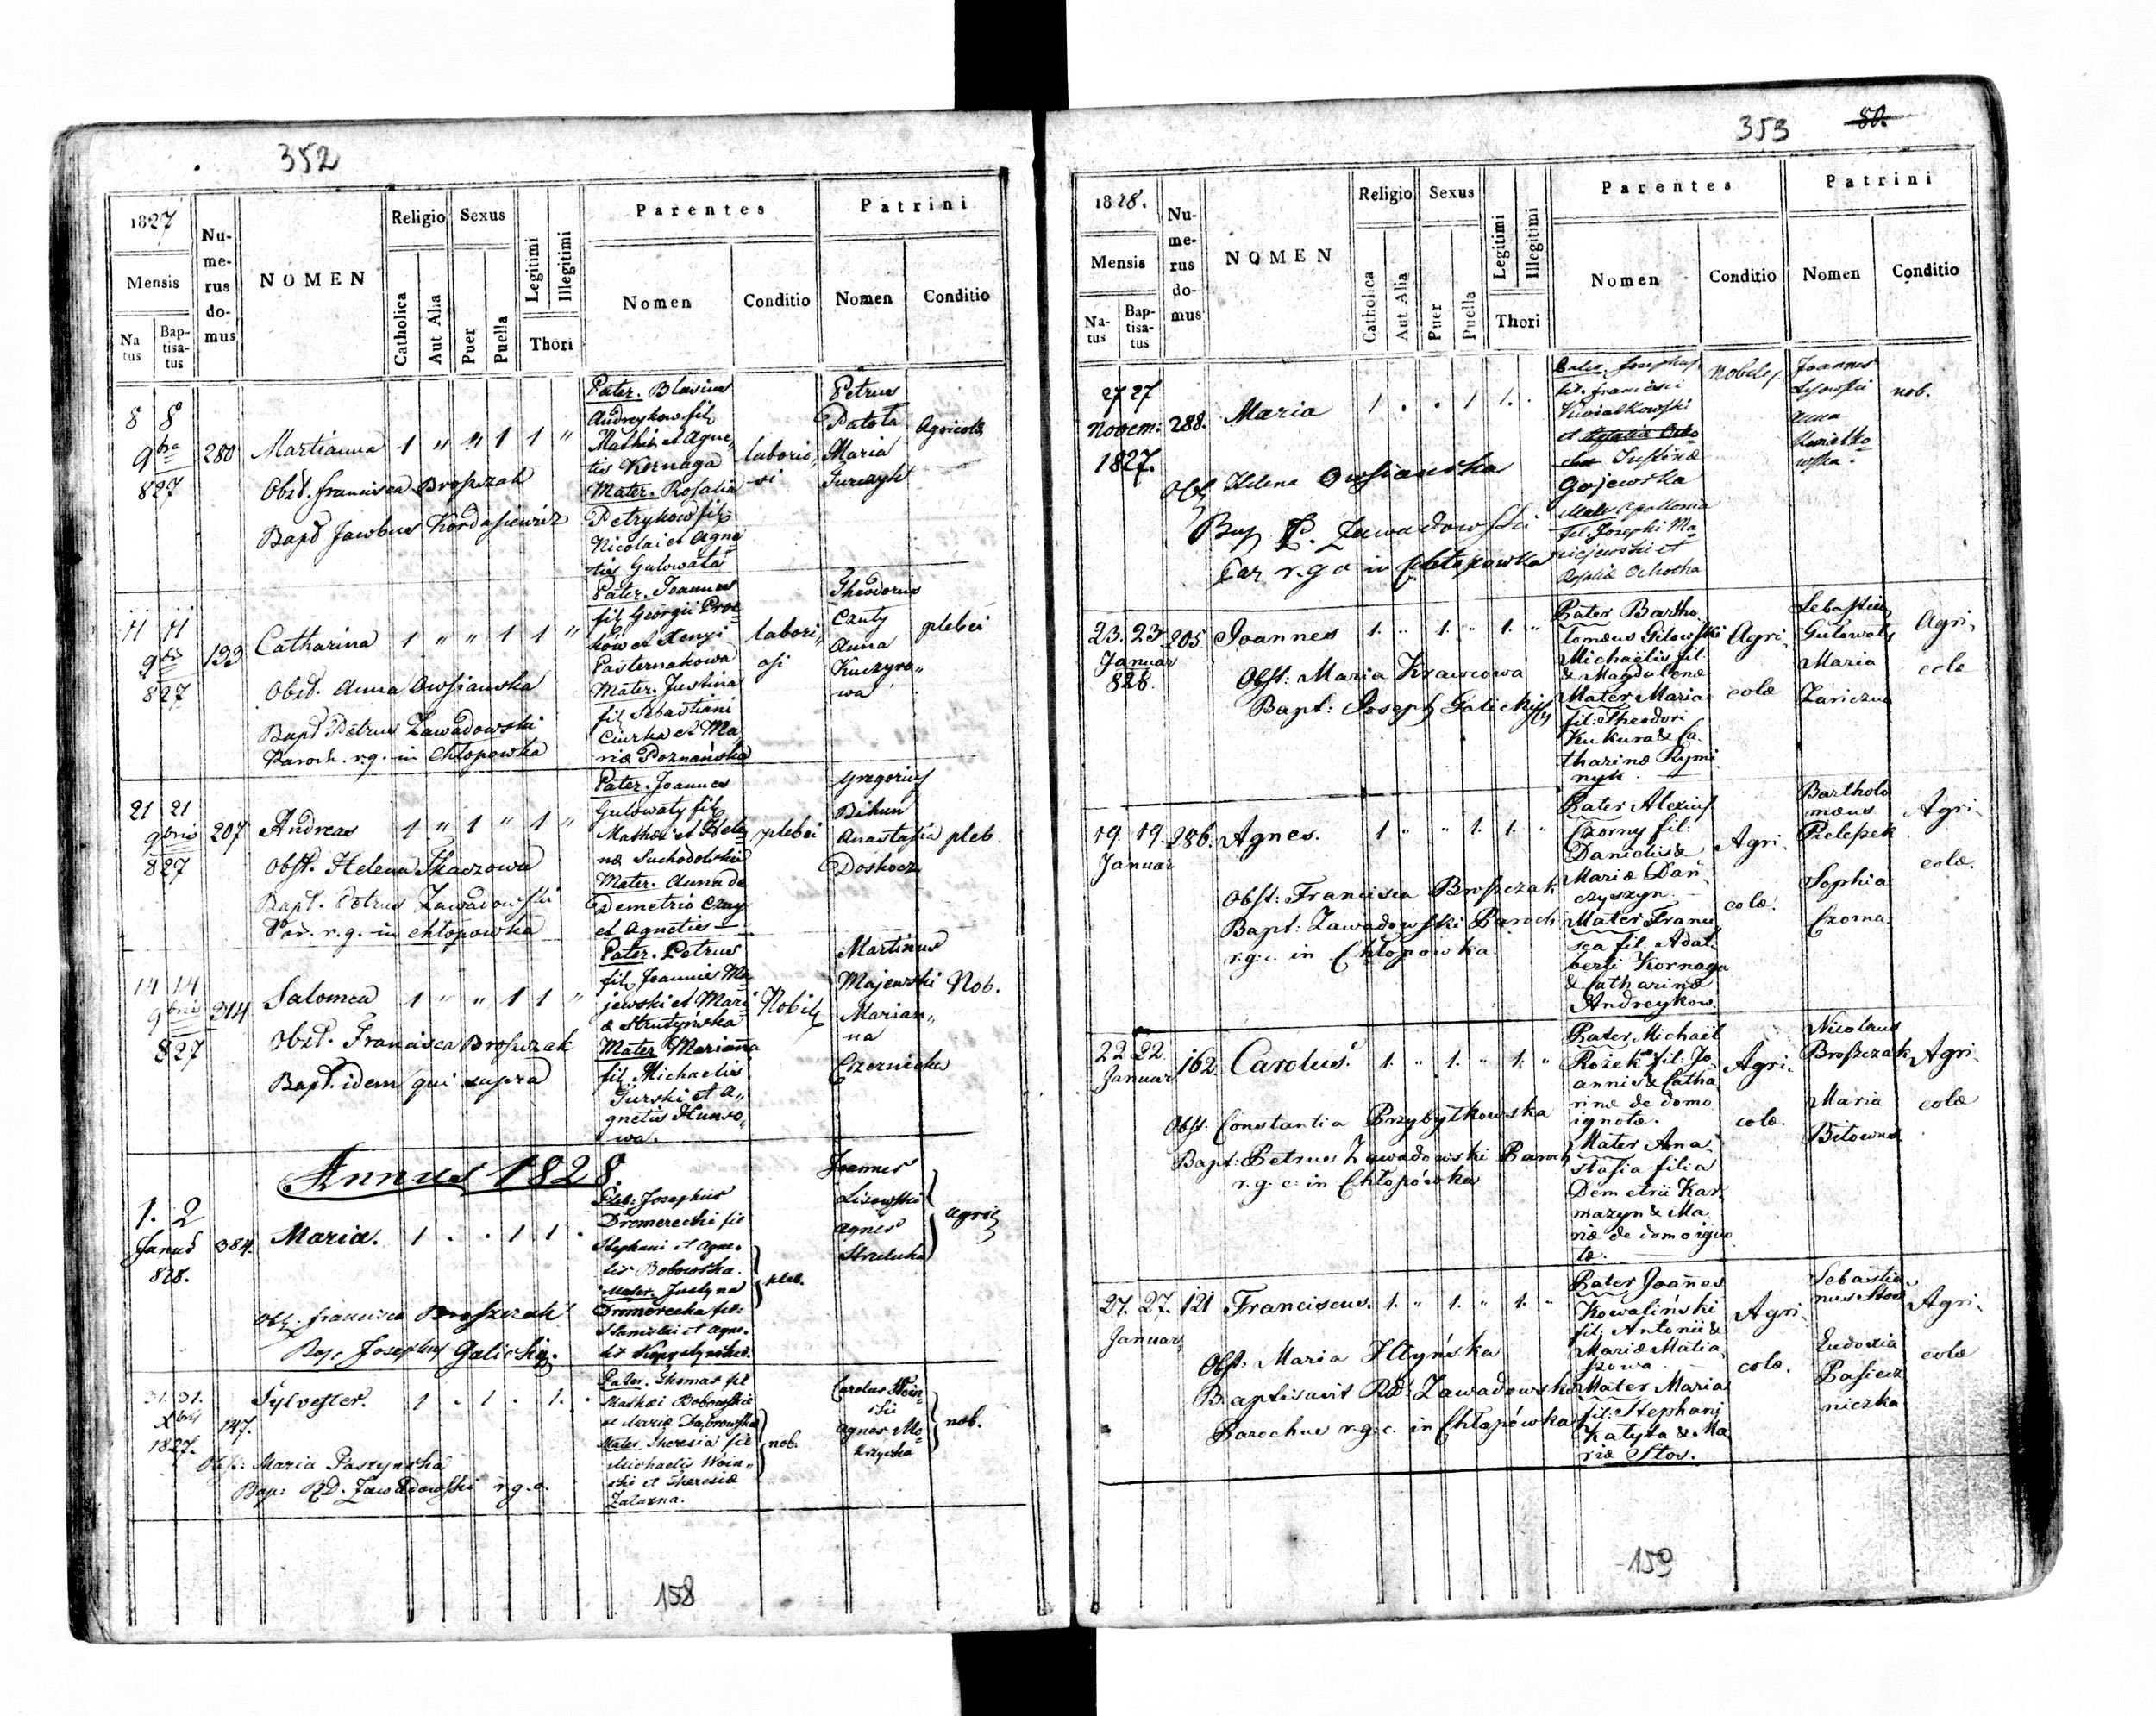 352
1827
Mensis
Na tus
Bap- tisa- tus
Nu- me- rus do- mus
NOMEN
Religio
Catholica
Aut Alia
Sexus
Puer
Puella
Legitimi
Illegitimi
Thori
Parentes
Nomen
Conditio
Patrini
Nomen
Conditio
8 8
9bra
827
280
Martianna 1 " " 1 1 "
Obst. Francisca Broszczak
Bapt Jacobus Kordasiewicz
Pater. Blasius
Andreykow fil
Mathiæ et Agne„
tis Kornaga
Mater. Rosalia
Petrykow fil
Nicolai et Agne
tis Gulowata
laborio„
si
Petrus
Patota
Maria
Jurczyk
Agricolæ
11 11
9bris
827
133
Catharina 1 " " 1 1 "
Obst. Anna Owsianska
Bapt Petrus Zawadowski
Paroch. r.g. in Chłopowka
Pater. Joannes
fil Georgii Proc
kow et Xenyi
Pasternakowa
Mater. Justina
fil Sebastiani
Ciurka et Ma
riæ Poznańska
labori„
osi
Theodorus
Czuty
Anna
Kuczyro„
wa
plebei
21 21
9bris
827
207
Andreas 1 " 1 " 1 "
Obst. Helena Tkaczowa
Bapt. Petrus Zawadowski
Par. r.g. in Chłopowka
Pater. Joannes
Gulowaty fil
Mathæi et Hele
næ Suchodolskiæ
Mater. Anna de
Demetrio Czuy
et Agnetis
plebei
Gregorius
Bihun
Anastasia
Doskocz
pleb.
14 14
9bris
827
314
Salomea 1 " " 1 1 "
Obst. Francisca Broszczak
Bapt. idem qui supra
Pater. Petrus
fil Joannis Ma
jewski et Mari
æ Strutyńska
Mater Marianna
fil Michaelis
Gurski et A„
gnetis Hunso„
wa.
Nobil
Martinus
Majewski
Marian„
na
Czernicka
Nob.
Annus 1828.
1. 2
Januar
828.
384.
Maria. 1 . . 1 1 .
Obst. Francisca Broszczak
Bap. Josephus Galicki
Pater: Josephus
Dromerecki fil
Stephani et Agne-
tis Bobowska.
Mater Justyna
Dromerecka fil:
Stanislai et Agne-
tis
pleb.
Joannes
Lisowski
Agnes
Strelecka
agric
31. 31.
Xbris
1827.
147.
Sylvester. 1 . 1 . 1. .
Obst: Maria Paszynska
Bap: RD. Zawadowski r.g.c.
Pater. Thomas fil
Mathæi Bobowskie
et Mariæ Dąbrowska
Mater Theresia fil
Michaelis Woin„
ski et Theresiæ
Zalazna.
nob.
Carolus Woin
ski
Agnes Mo-
krzycka
nob.
158
353
50.
1828.
Mensis
Na- tus
Bap- tisa- tus
Nu- me- rus do- mus
NOMEN
Religio
Catholica
Aut Alia
Sexus
Puer
Puella
Legitimi
Illegitimi
Thori
Parentes
Nomen
Conditio
Patrini
Nomen
Conditio
27 27
Novem:
1827.
288.
Maria 1 . . 1 1. .
Obst Helena Owsianska
Bap P. Zawadowski
Par r.g.c in Chłopowka
Pater. Josephus
fil. Francisci
Kwiatkowski
et Rosalia Ocho
cka Justinæ
Gojewska
Mater Apollonia
fil. Josephi Ma
niejewski et
Rosaliæ Ochocka
Nobiles.
Joannes
Lisowski
Anna
Kwiatko
wska.
nob.
23. 23
Januar
828.
205.
Joannes 1. " 1. " 1. "
Obst: Maria Krawcowa
Bapt: Joseph Galicki
Pater Bartho
lomæus Gilowski
Michaëlis fil.
& Magdalenæ
Mater Maria
fil: Theodori
Kukura & Ca
tharinæ Rymi
nyk.
Agri„
colæ
Sebastian
Gulowaty
Maria
Zariczna
Agri„
colæ
19. 19.
Januar
286.
Agnes. 1 " " 1. 1. "
Obst: Francisca Broszczak
Bapt: Zawadowski Paroch
r.g.c. in Chłopowka.
Pater Alexius
Czorny fil:
Danielis &
Mariæ Dań
czyszyn.
Mater Franci
sca fil. Adal
berti Kornaga
& Catharinæ
Andreykow.
Agri„
colæ.
Bartholo
mæus
Pzelepek
Sophia
Czorna.
Agri„
colæ.
22 22.
Januar
162.
Carolus. 1. " 1. " 1. "
Obst. Constantia Przybytkowska
Bapt: Petrus Zawadowski Paroch
r.g.c: in Chłopówka
Pater Michaël
Rożek fil: Jo
annis & Catha
rinæ de domo
ignota.
Mater Ana
stasia filia
Demetrii Kar
mazyn & Ma
riæ de domo igno
ta.
Agri„
colæ.
Nicolaus
Broszczak
Maria
Bitowna
Agri„
colæ
27. 27.
Januar
121
Franciscus. 1. " 1. " 1. "
Obst: Maria Iłtyńska
Baptisavit RD: Zawadowski
Parochus r.g.c. in Chłopówka
Pater Joannes
Kowaliński
fil: Antonii &
Mariæ Matia
szowa.
Mater Maria
fil: Stephani
Katyta & Ma
riæ Stos.
Agri„
colæ.
Sebastia
nus Stos
Eudoxia
Pasiecz
niczka
Agri„
colæ
159